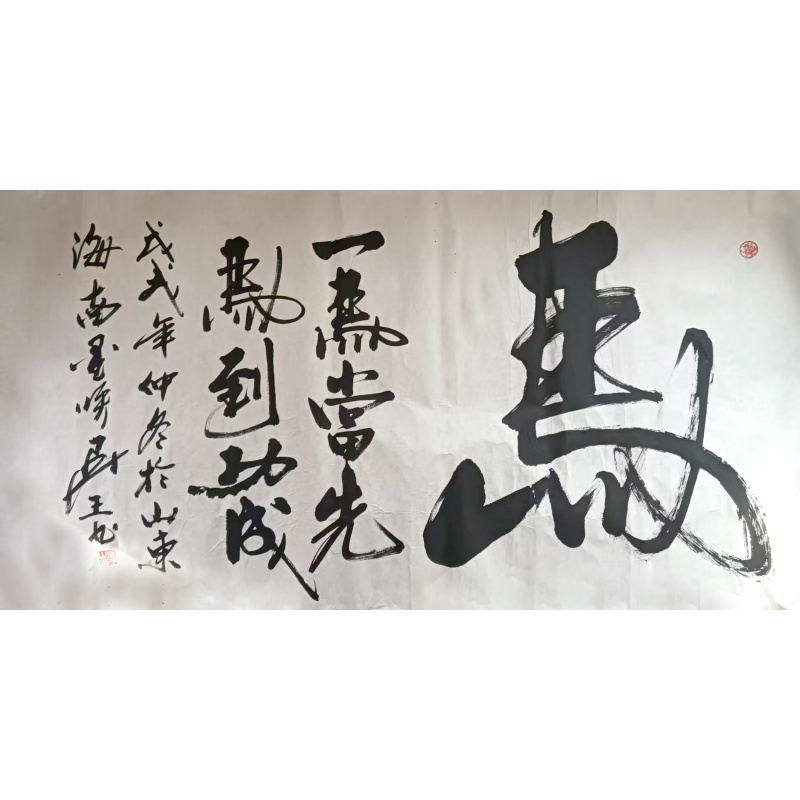 馬
一馬當先
馬到功成
戊戌年仲冬於山東
海南墨